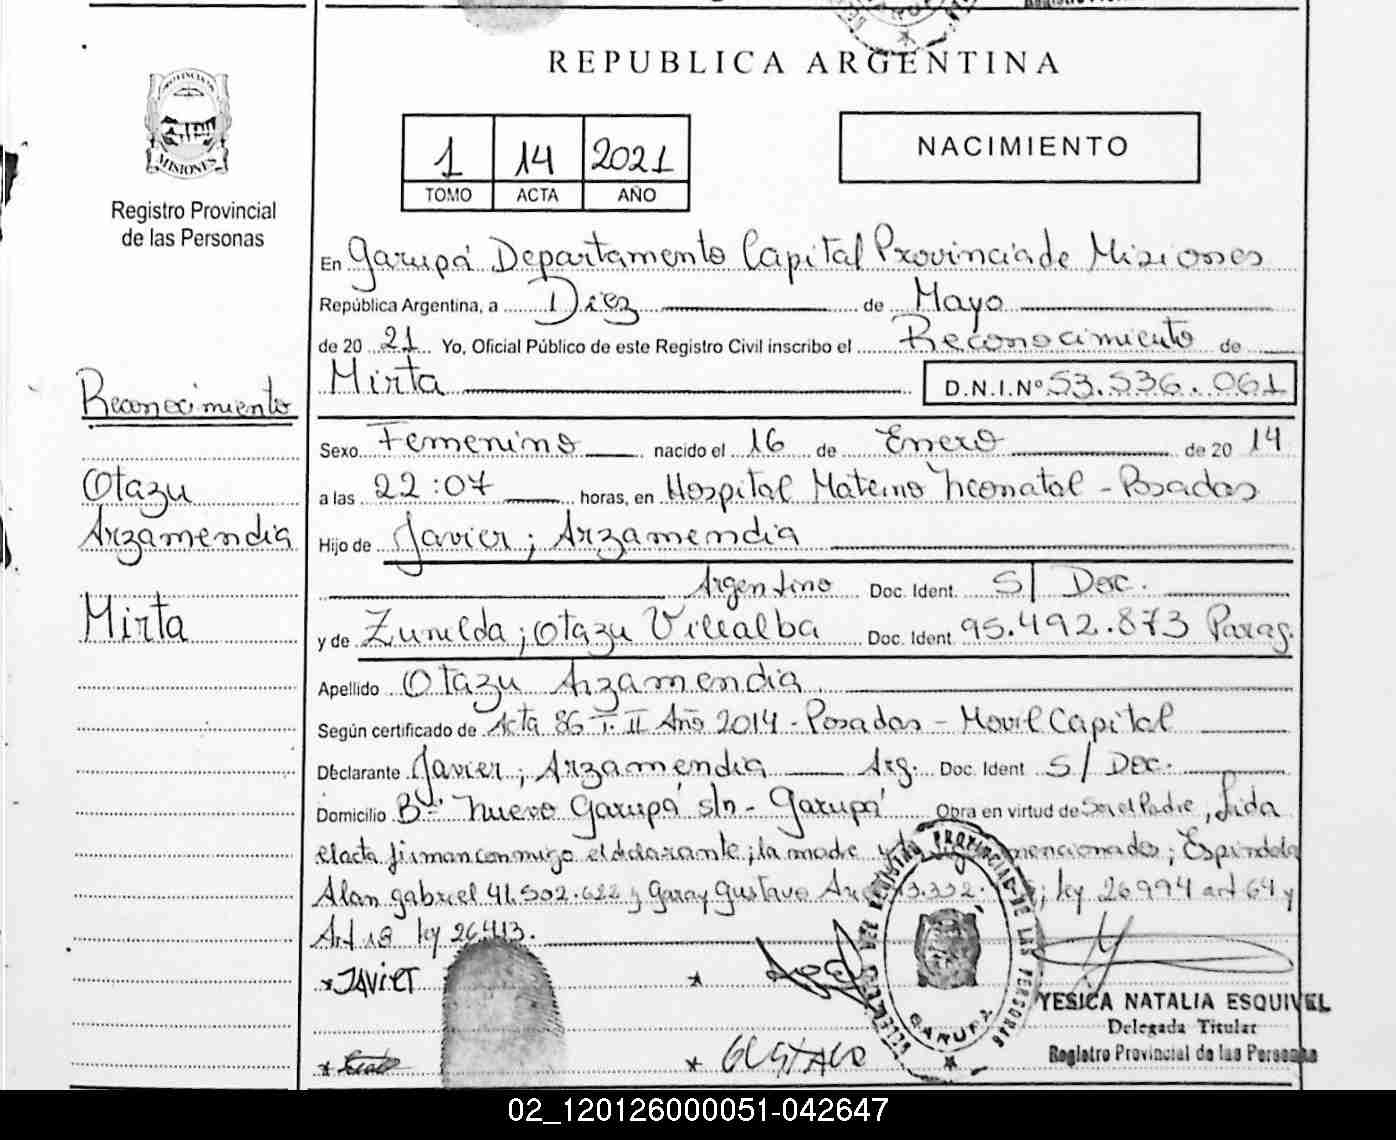 REPUBLICA ARGENTINA
PROVINCIA DE
MISIONES
Registro Provincial
de las Personas
1 14 2021
TOMO ACTA AÑO
NACIMIENTO
En Garupá Departamento Capital Provincia de Misiones
República Argentina, a Diez de Mayo
de 20 21 Yo, Oficial Público de este Registro Civil inscribo el Reconocimiento de
Mirta D.N.I.Nº 53.536.061
Reconocimiento
Otazu
Arzamendia
Mirta
Sexo Femenino nacido el 16 de Enero de 20 14
a las 22:07 horas, en Hospital Materno Neonatal - Posadas
Hijo de Javier; Arzamendia
Argentino Doc. Ident. S/ Doc.
y de Zunilda; Otazu Villalba Doc. Ident 95.492.873 Parag.
Apellido Otazu Arzamendia
Según certificado de Acta 86 T. II Año 2014 - Posadas - Movil Capital
Declarante Javier; Arzamendia Arg. Doc. Ident S/ Doc.
Domicilio Bº Nuevo Garupá s/n - Garupá Obra en virtud de Ser el Padre, Lida
el acta firman conmigo el declarante; la madre y mencionados; Espindola
Alan gabriel 41.502.622 y Garay Gustavo 332. ; ley 26994 art 64 y
Art 18 ley 26413.
*JAVIER
* GUSTAVO
REGISTRO PROVINCIAL DE LAS PERSONAS
GARUPA
YESICA NATALIA ESQUIVEL
Delegada Titular
Registro Provincial de las Personas
02_120126000051-042647